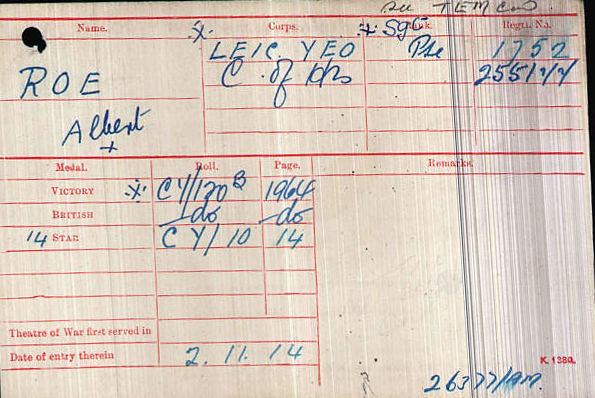 See TEM Card.
Name. Corps. Rank. Regtl. No.
ROE
Albert
+
LEIC. YEO Pte 1752
C. of Hrs 255177
Sgt
Medal. Roll. Page. Remarks.
VICTORY CY/120B 1964
BRITISH do do
14 STAR CY/10 14
Theatre of War first served in
Date of entry therein 2.11.14
K. 1380.